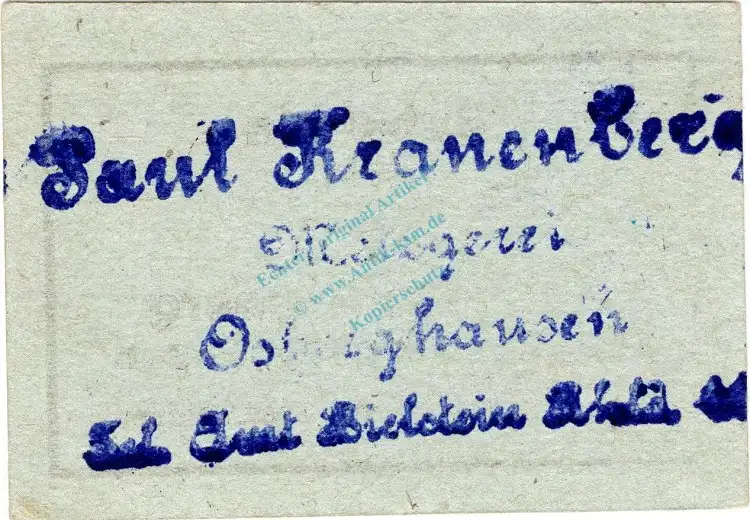 Paul Kranenberg
Metzgerei
Osberghausen
Tel. Amt Bielstein Rhld
Echter Original Artikel
© www.Antikeksm.de
Kopierschutz